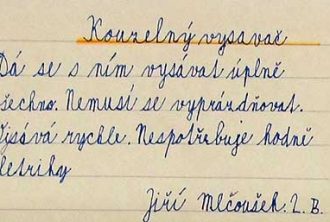 Kouzelný vysavač
Dá se s ním vysávat úplně
šechno. Nemusí se vyprázdňovat.
ysává rychle. Nespotřebuje hodně
letriky
Jiří Mlčoušek 2. B.